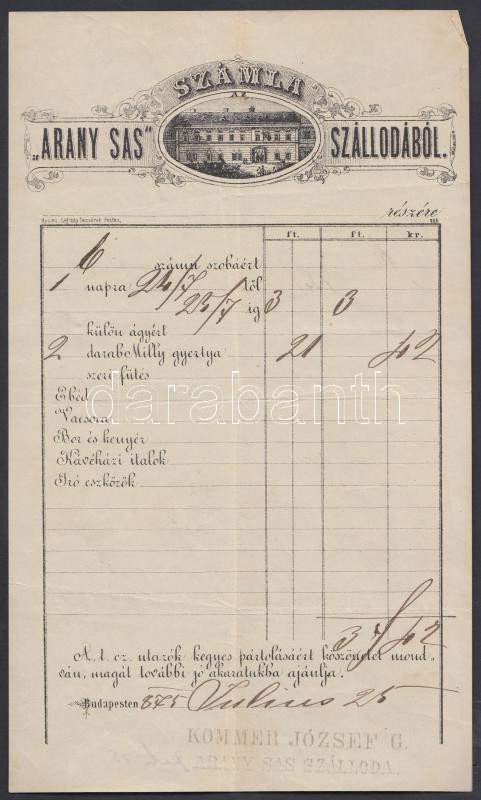 SZÁMLA
AZ
„ARANY SAS" SZÁLLODÁBÓL.
részére
ft. ft. kr.
6 számu szobáért
1 napra 24/7 től
25/7 ig 3 3
külön ágyért
2 darab Milly gyertya 21 42
szeri fűtés
Ebéd
Vacsora
Bor és kenyér
Kávéházi italok
Iró eszközök
darabanth
3 42
A. t. cz. utazók kegyes pártolásaért köszönetet mond-
ván, magát további jó akaratukba ajánlja.
Budapesten 875 Julius 25
KOMMER JÓZSEF G.
ARANY SAS SZÁLLODA.